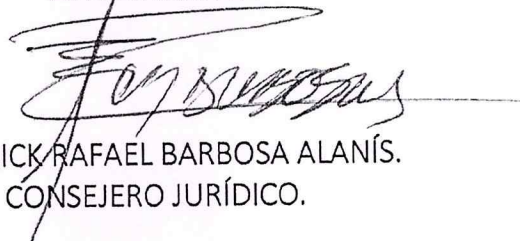 ICK RAFAEL BARBOSA ALANÍS.
CONSEJERO JURÍDICO.